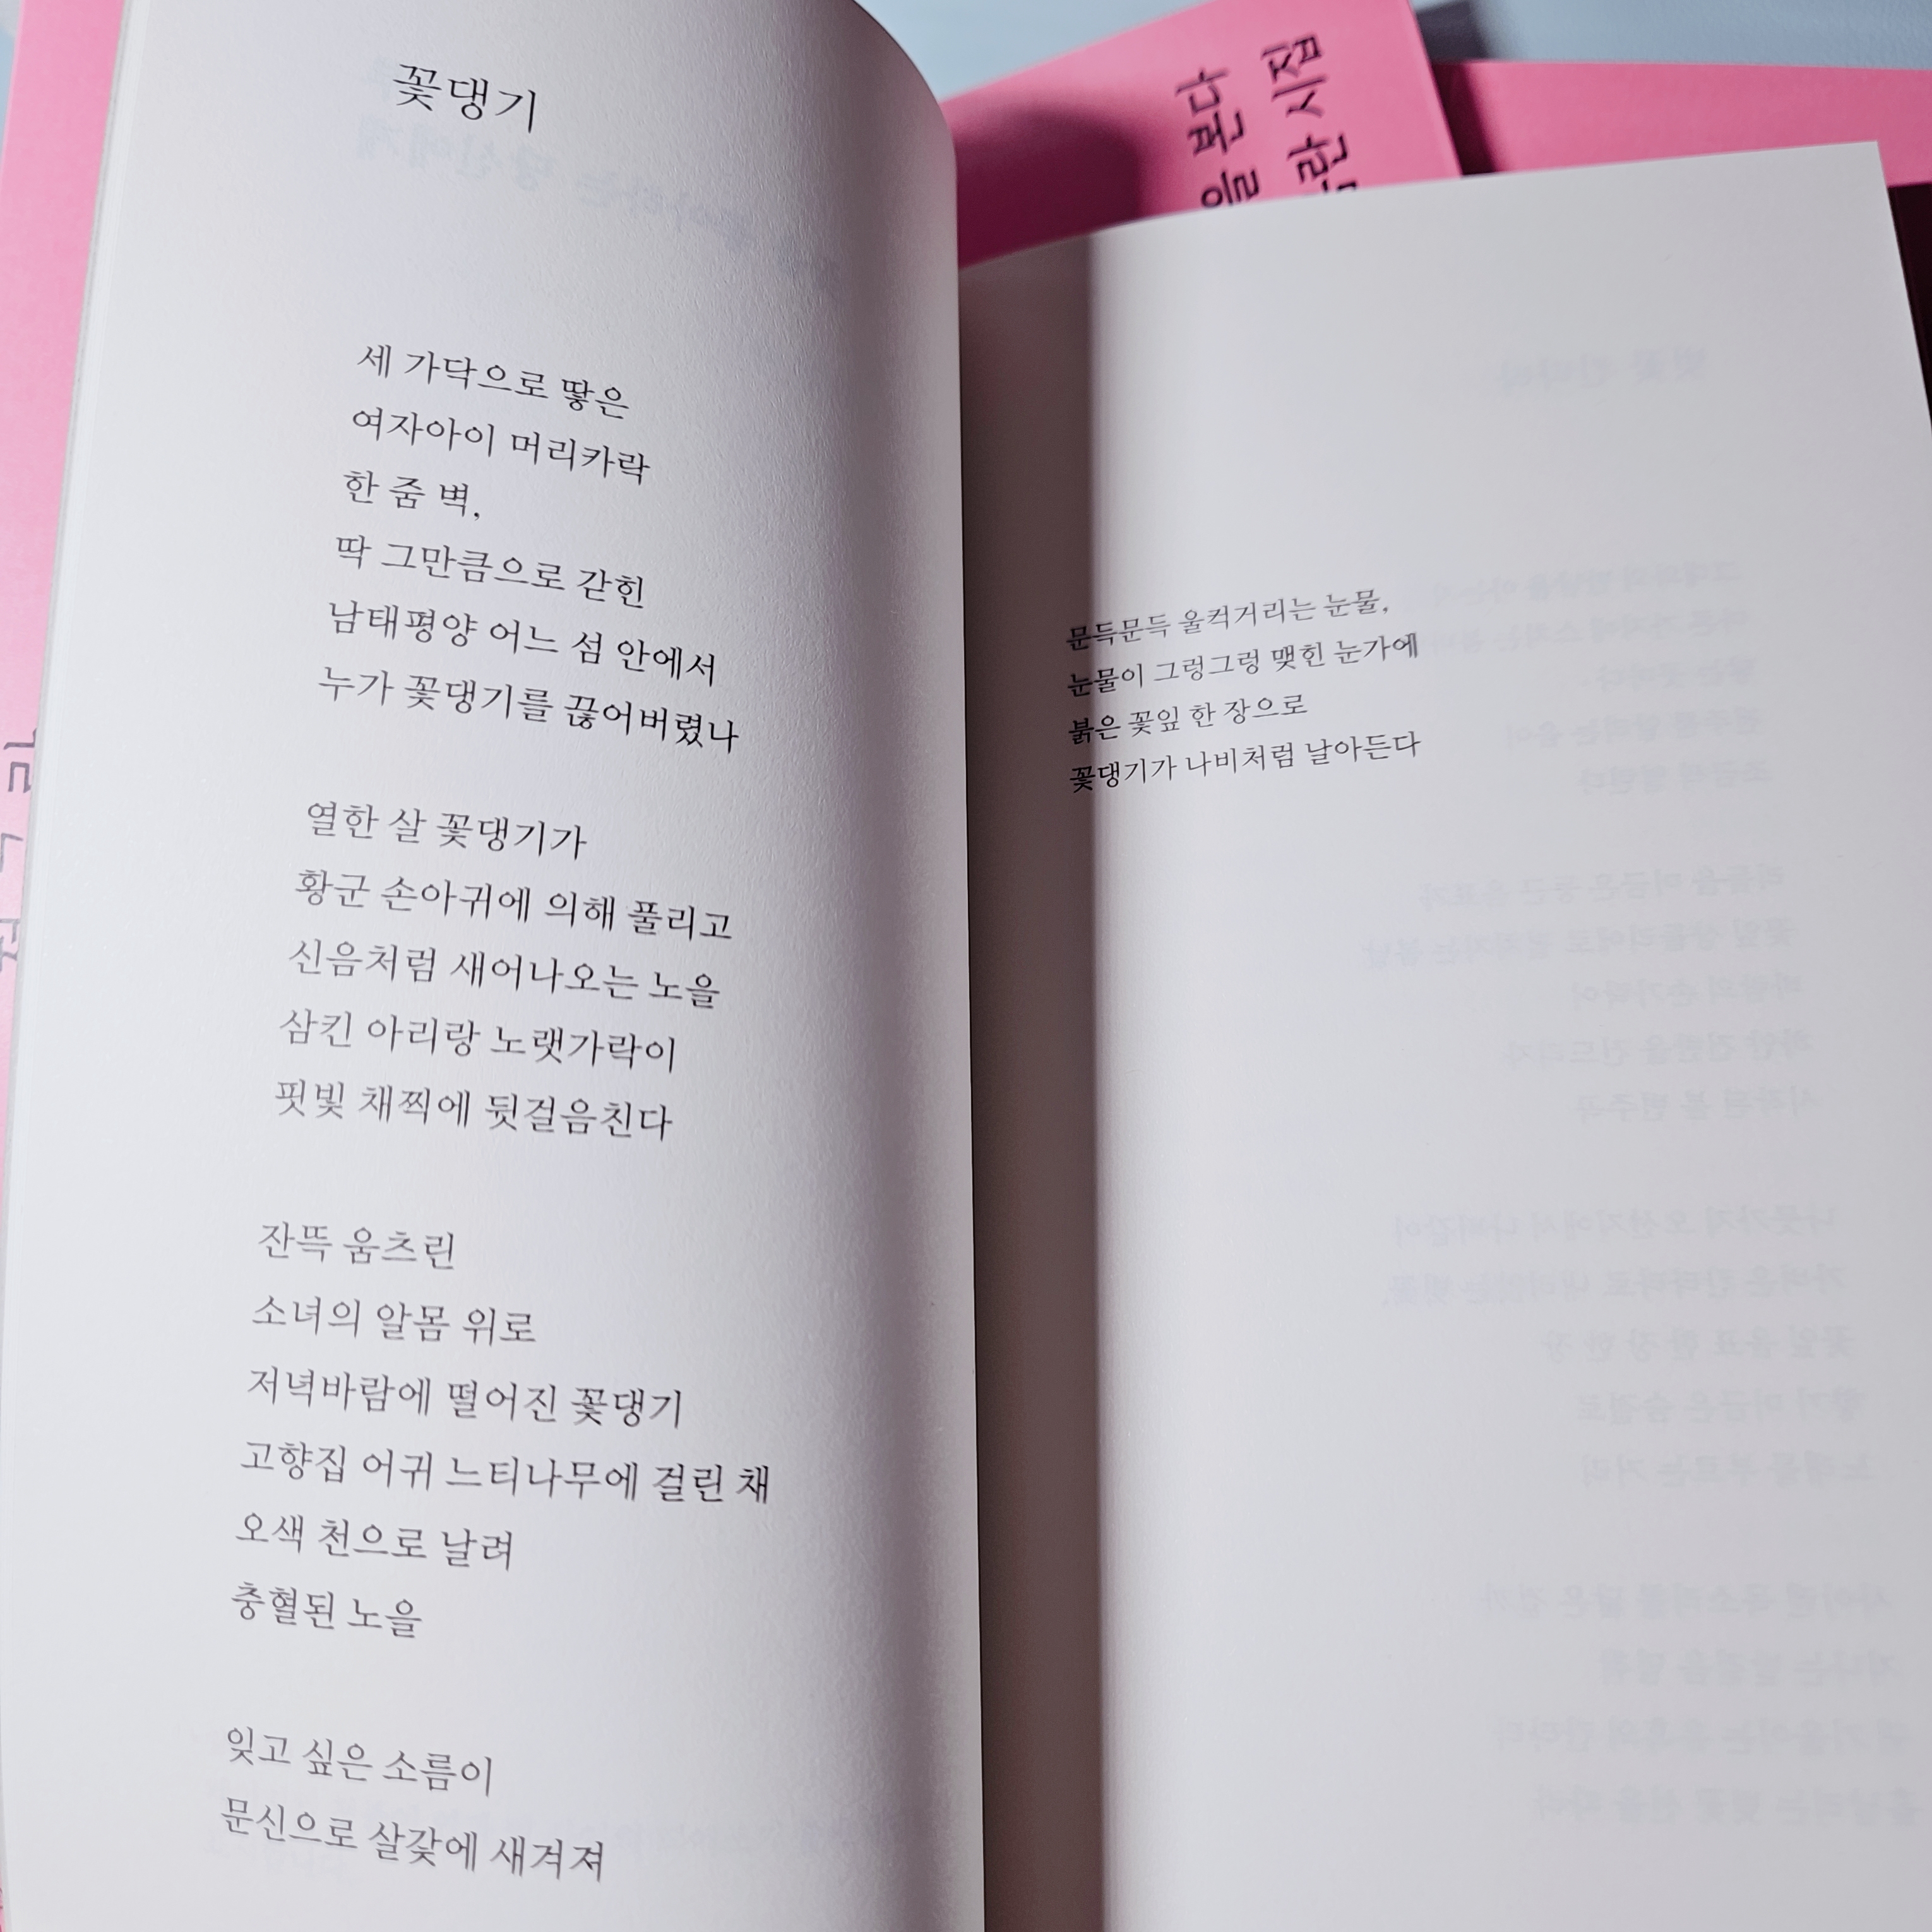 꽃댕기
세 가닥으로 땋은
여자아이 머리카락
한 줌 벽,
딱 그만큼으로 갇힌
남태평양 어느 섬 안에서
누가 꽃댕기를 끊어버렸나
열한 살 꽃댕기가
황군 손아귀에 의해 풀리고
신음처럼 새어나오는 노을
삼킨 아리랑 노랫가락이
핏빛 채찍에 뒷걸음친다
잔뜩 움츠린
소녀의 알몸 위로
저녁바람에 떨어진 꽃댕기
고향집 어귀 느티나무에 걸린 채
오색 천으로 날려
충혈된 노을
잊고 싶은 소름이
문신으로 살갗에 새겨져
문득문득 울컥거리는 눈물,
눈물이 그렁그렁 맺힌 눈가에
붉은 꽃잎 한 장으로
꽃댕기가 나비처럼 날아든다
을 본다
란 시집